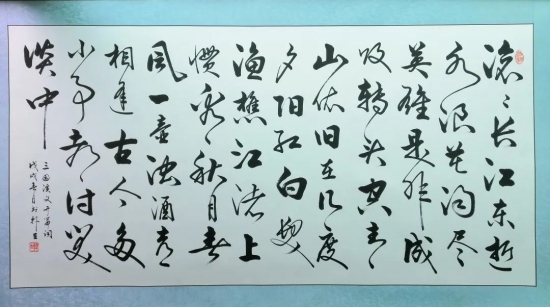 滚〻长江东逝
水浪花淘尽
英雄是非成
败转头空青
山依旧在几度
夕阳红白发
渔樵江渚上
惯看秋月春
风一壶浊酒喜
相逢古今多
少事都付笑
谈中
三国演义开篇词
戊戌春月